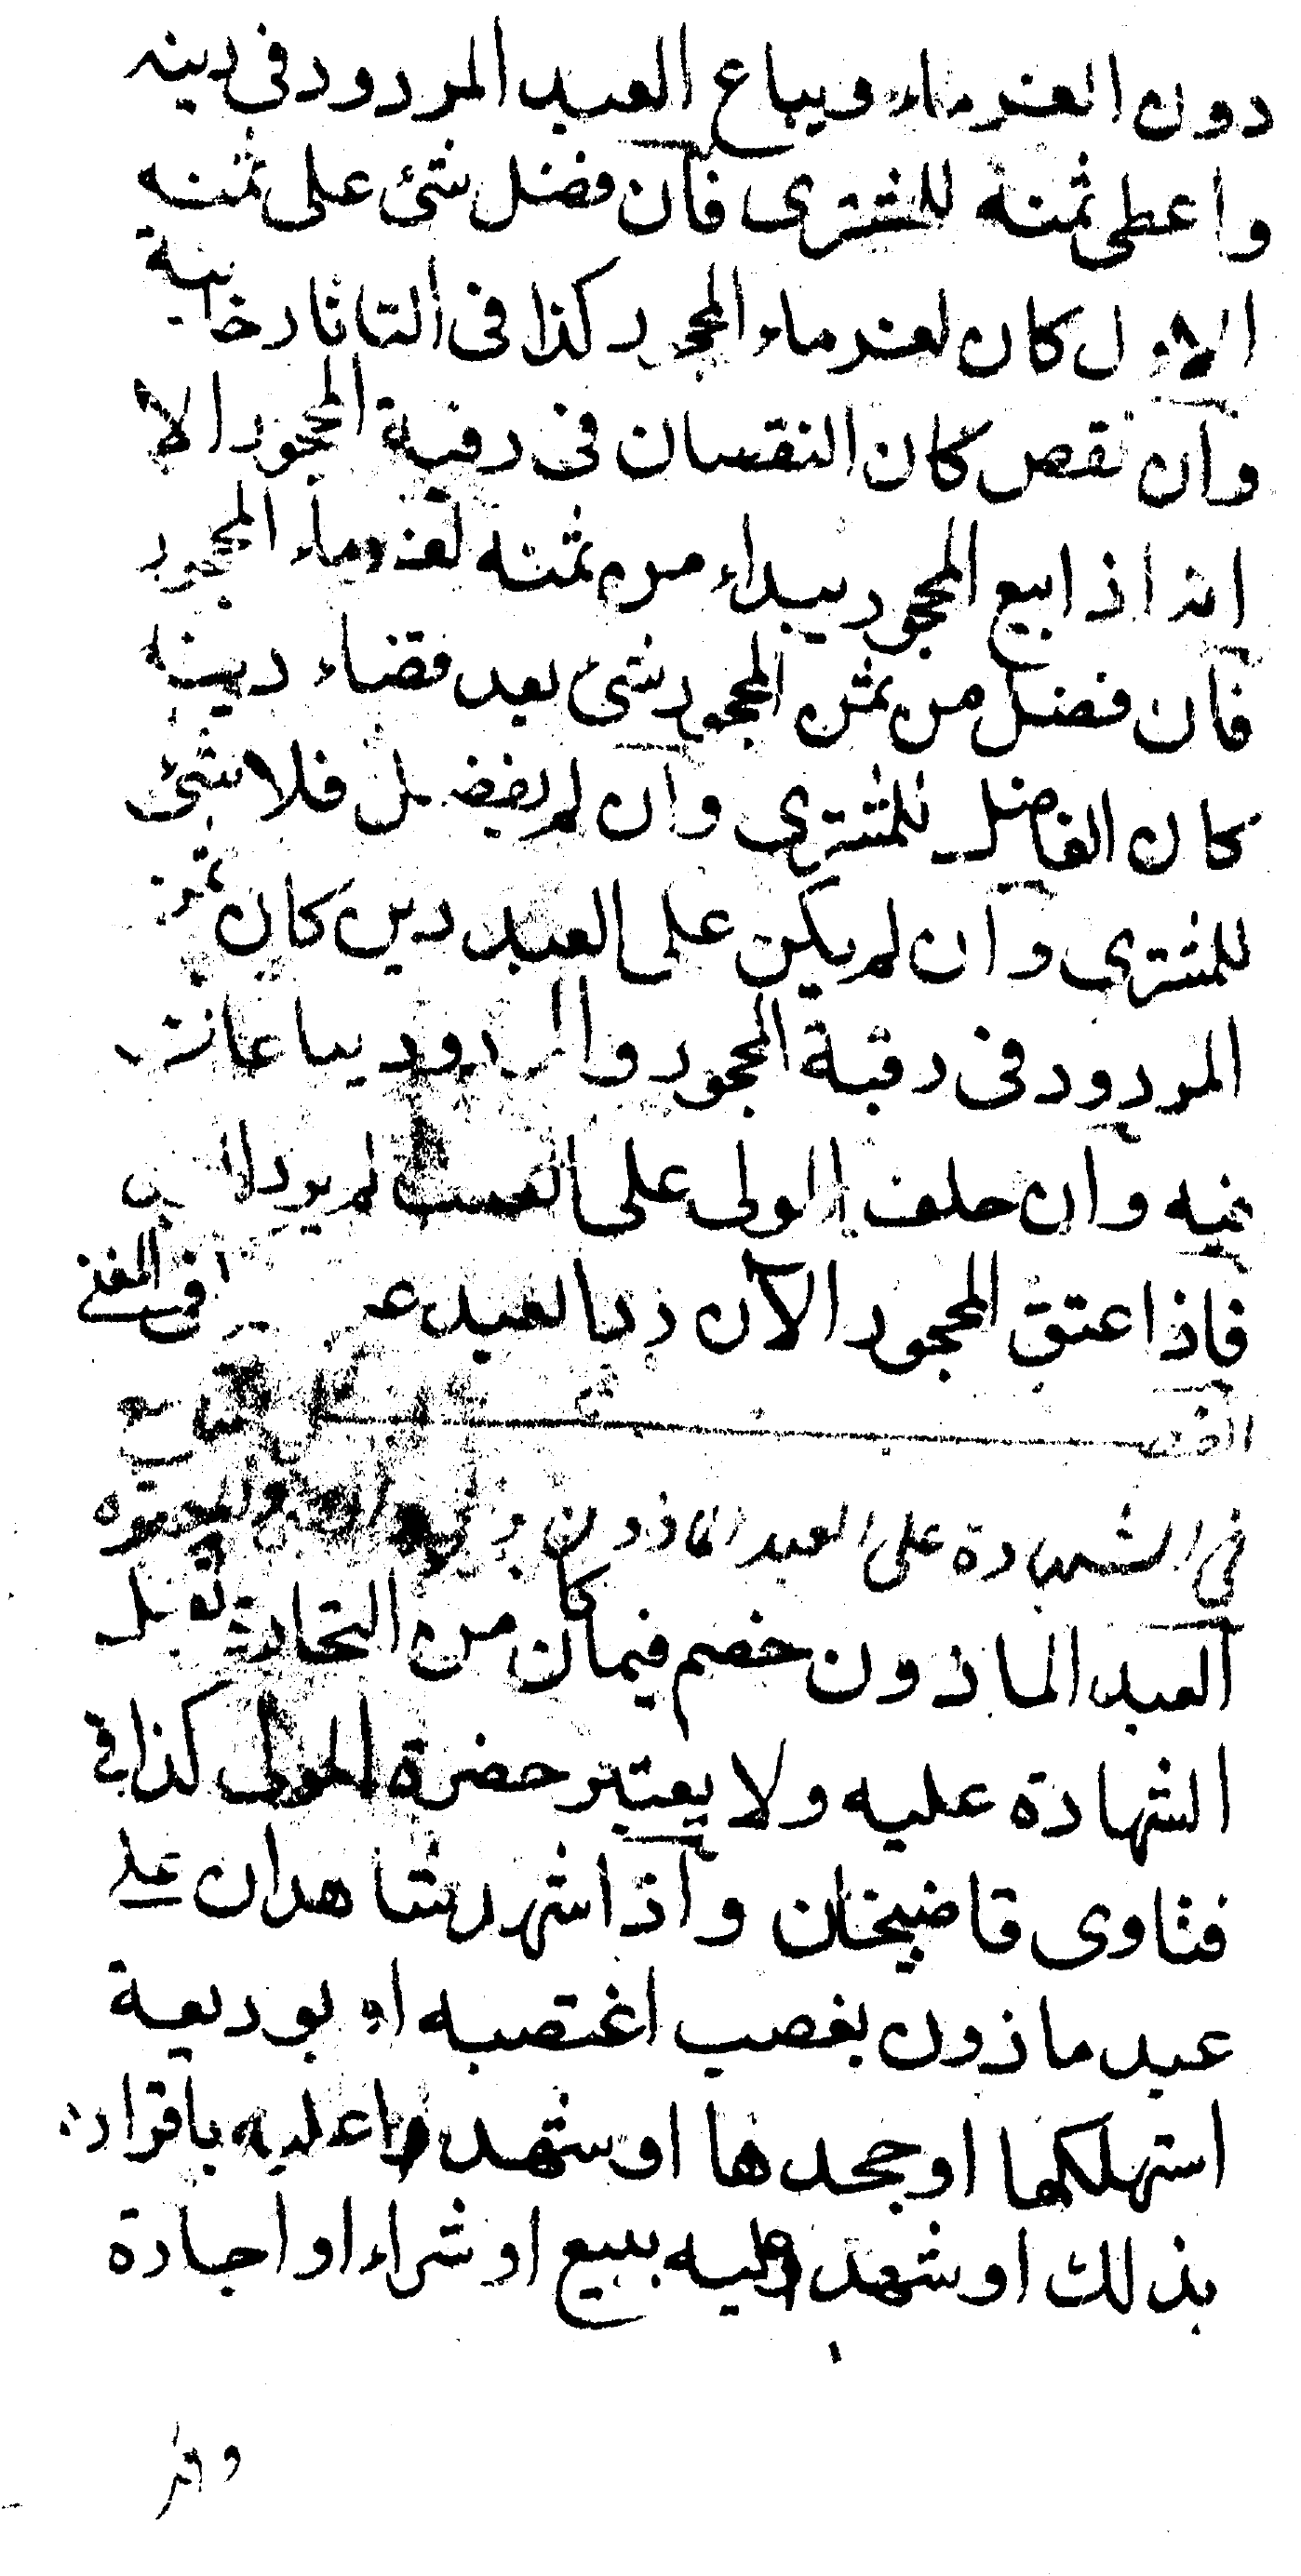 دون الغرماء ويباع العبد المردود فى دينه
واعطى ثمنه للمشترى فان فضل شئ على ثمنه
الاول كان لغرماء المحجور كذا فى التاتارخانية
وان نقص كان النقسان فى رقبة المحجور الا
انه اذا بيع المحجور يبداء من ثمنه لغرماء المحجور
فان فضل من ثمن المحجور شئ بعد قضاء دينه
كان الفاضل للمشترى وان لم يفضل فلا شئ
للمشترى وان لم يكن على العبد دين كان ثمن
المردود فى رقبة المحجور والمردود يباعان
فيه وان حلف المولى على العيب لم يرد
فاذا اعتق المحجور الآن رد العبد فى المغنى
السابع
فى الشهادة على العبد الماذون والمحجور
العبد الماذون خصم فيما كان من التجارة تقبل
الشهادة عليه ولا يعتبر حضرة المولى كذا فى
فتاوى قاضيخان واذا شهد شاهدان على
عبد ماذون بغصب اغتصبه او بوديعة
استهلكها او جحدها او شهدوا عليه باقراره
بذلك او شهد عليه ببيع او شراء او اجارة